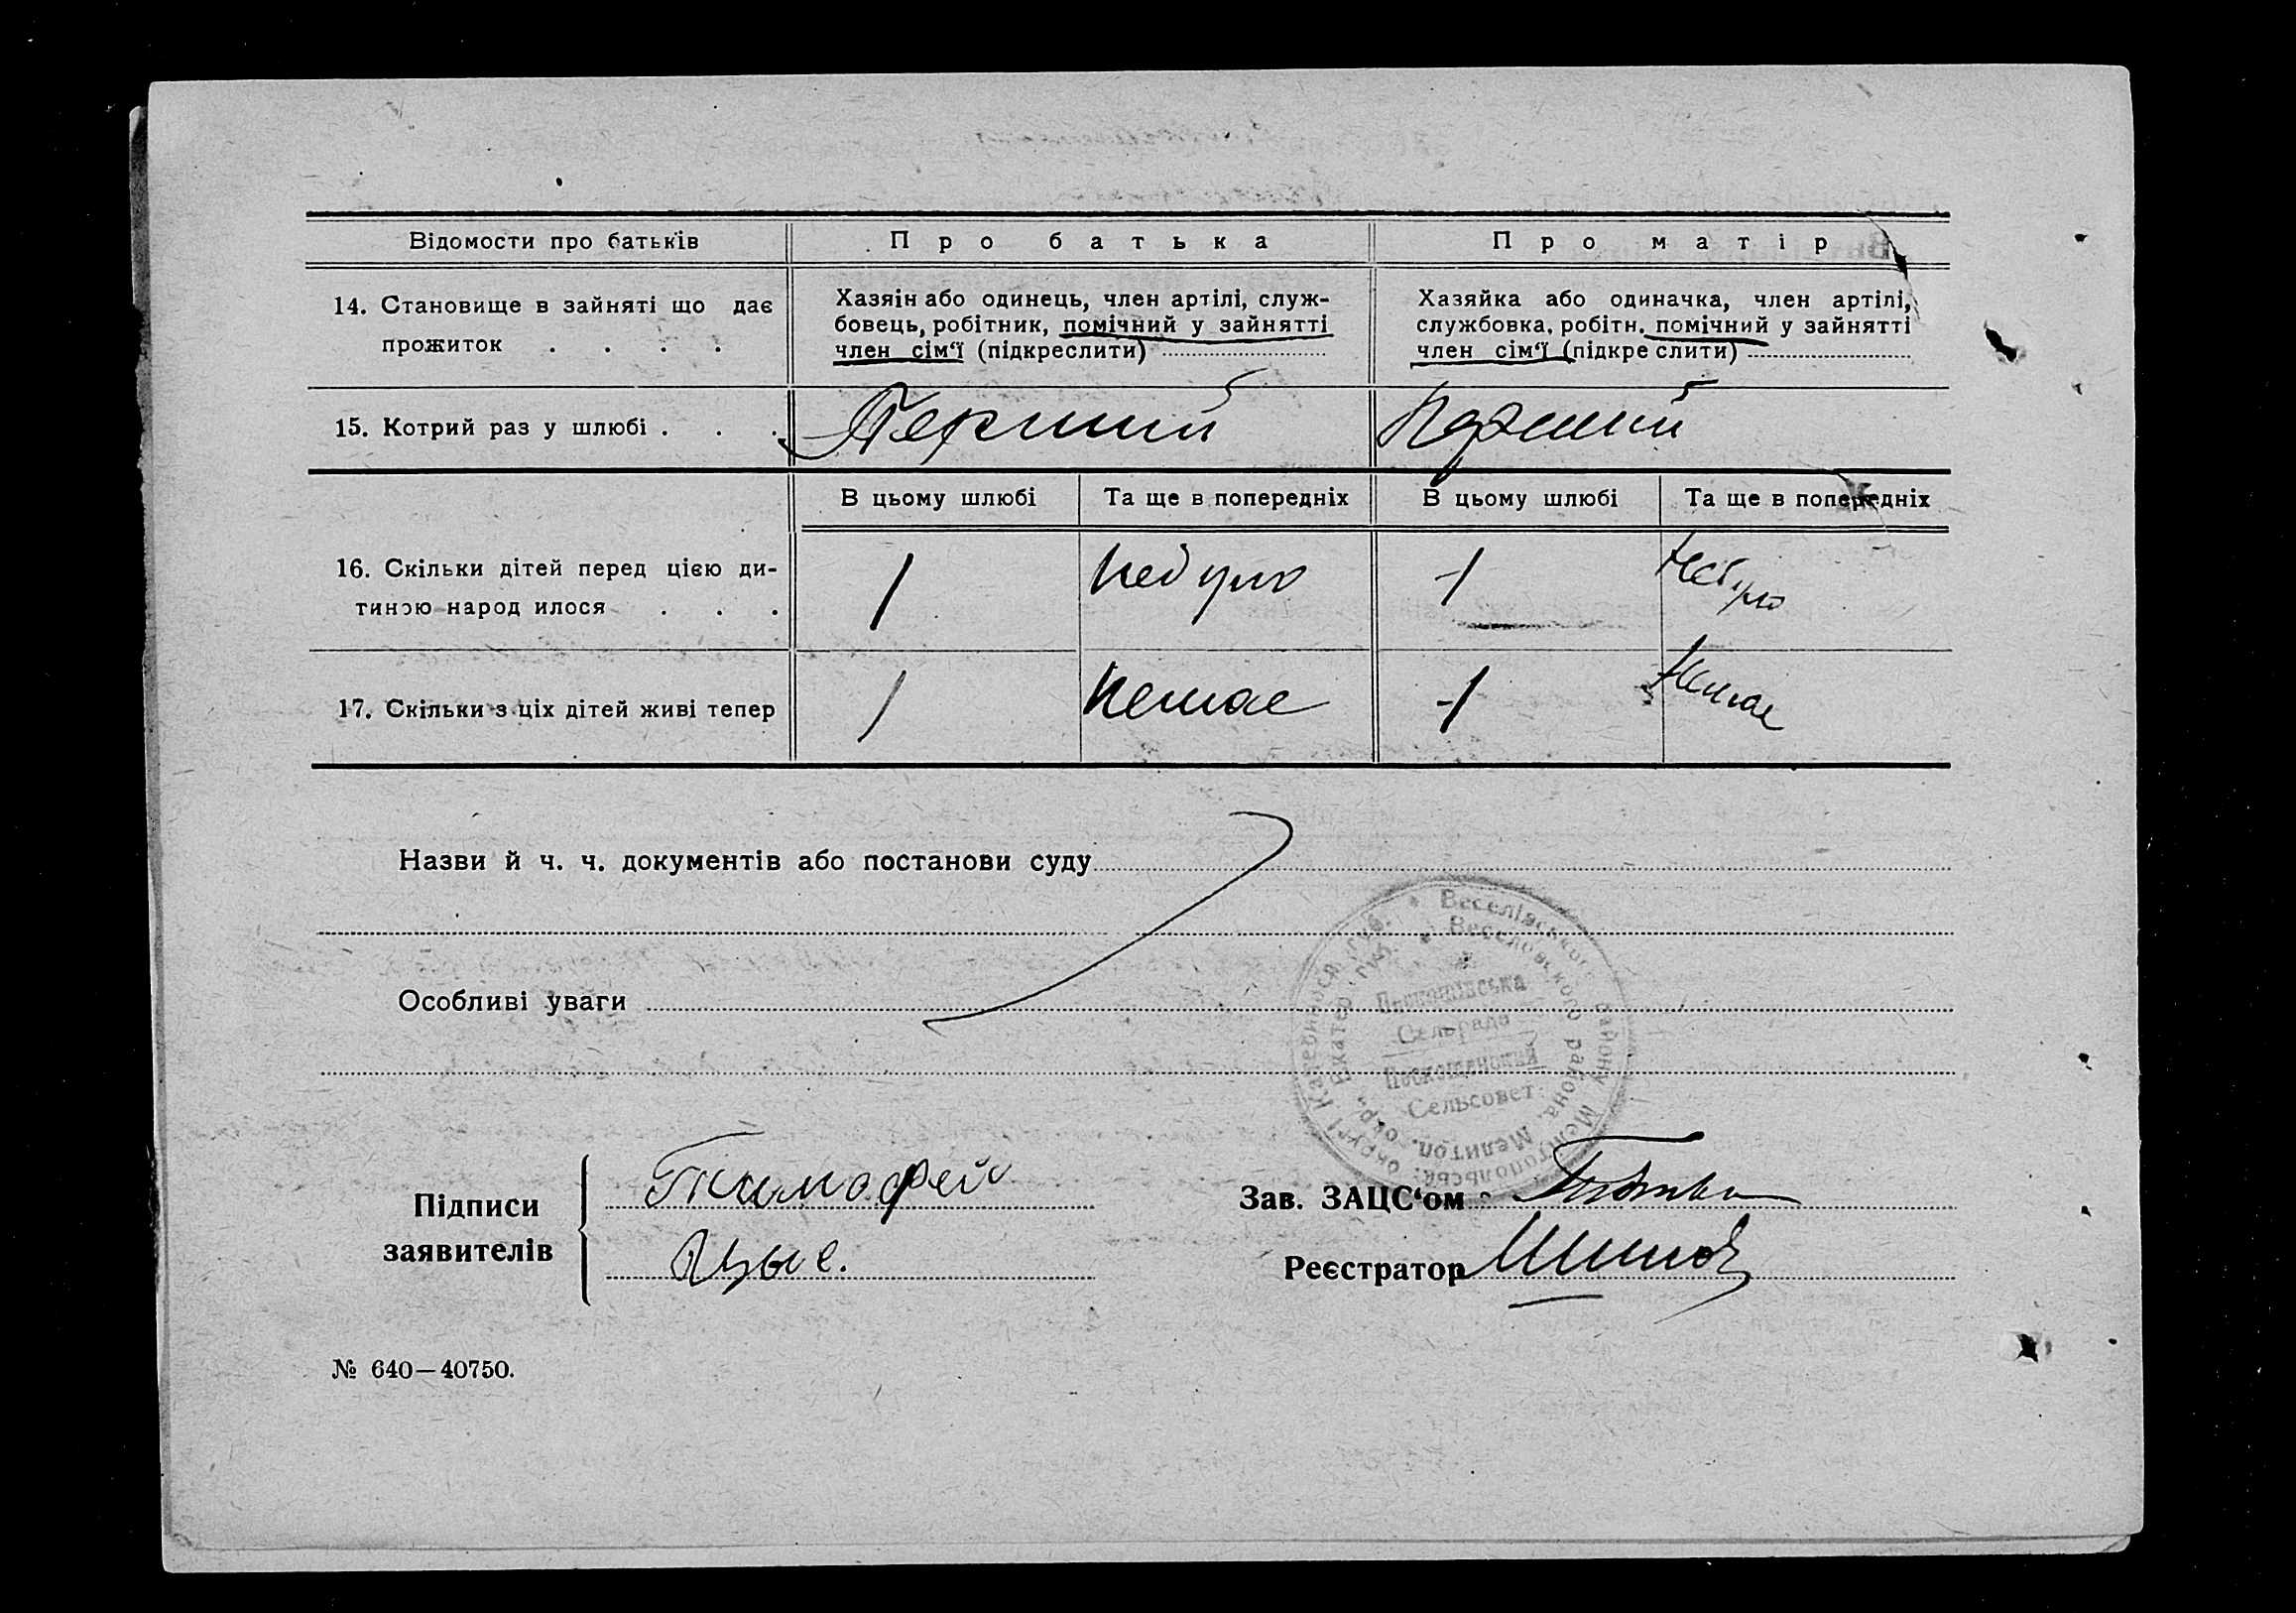 Відомости про батьків
Про батька
Про матір
14. Становище в зайняті що дає
прожиток . . . .
Хазяїн або одинець, член артілі, служ-
бовець, робітник, помічний у зайнятті
член сім'ї (підкреслити)
Хазяйка або одиначка, член артілі,
службовка, робітн. помічний у зайнятті
член сім'ї (підкре слити)
15. Котрий раз у шлюбі . . .
Перший
Перший
В цьому шлюбі
Та ще в попередніх
В цьому шлюбі
Та ще в попередніх
16. Скільки дітей перед цією ди-
тиною народ илося . . .
1
небуло
1
небуло
17. Скільки з ціх дітей живі тепер
1
немає
1
немає
Назви й ч. ч. документів або постанови суду
Особливі уваги
Веселівського району Мелітопольськ. округи Катериносл. губ.
Веселовского района, Мелитоп. окр. Екатер. губ.
Сельрада
Сельсовет
Підписи
заявителів
Тимофей
Зав. ЗАЦС'ом
Реєстратор
№ 640—40750.